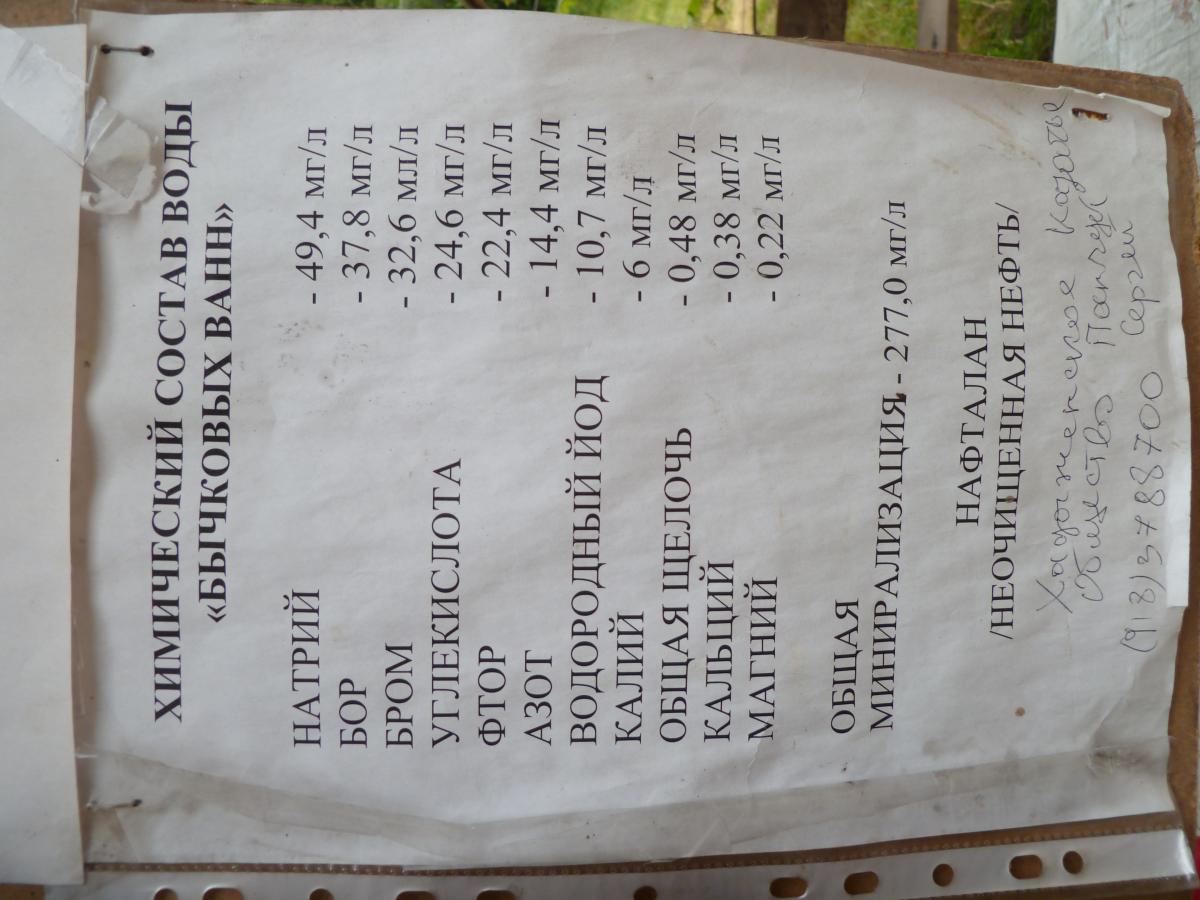 ХИМИЧЕСКИЙ СОСТАВ ВОДЫ
«БЫЧКОВЫХ ВАНН»
НАТРИЙ - 49,4 мг/л
БОР - 37,8 мг/л
БРОМ - 32,6 мл/л
УГЛЕКИСЛОТА - 24,6 мг/л
ФТОР - 22,4 мг/л
АЗОТ - 14,4 мг/л
ВОДОРОДНЫЙ ЙОД - 10,7 мг/л
КАЛИЙ - 6 мг/л
ОБЩАЯ ЩЕЛОЧЬ - 0,48 мг/л
КАЛЬЦИЙ - 0,38 мг/л
МАГНИЙ - 0,22 мг/л
ОБЩАЯ
МИНИРАЛИЗАЦИЯ - 277,0 мг/л
НАФТАЛАН
/НЕОЧИЩЕННАЯ НЕФТЬ/
Хадыженское Казачье
Общество
(918)3788700 Сергей